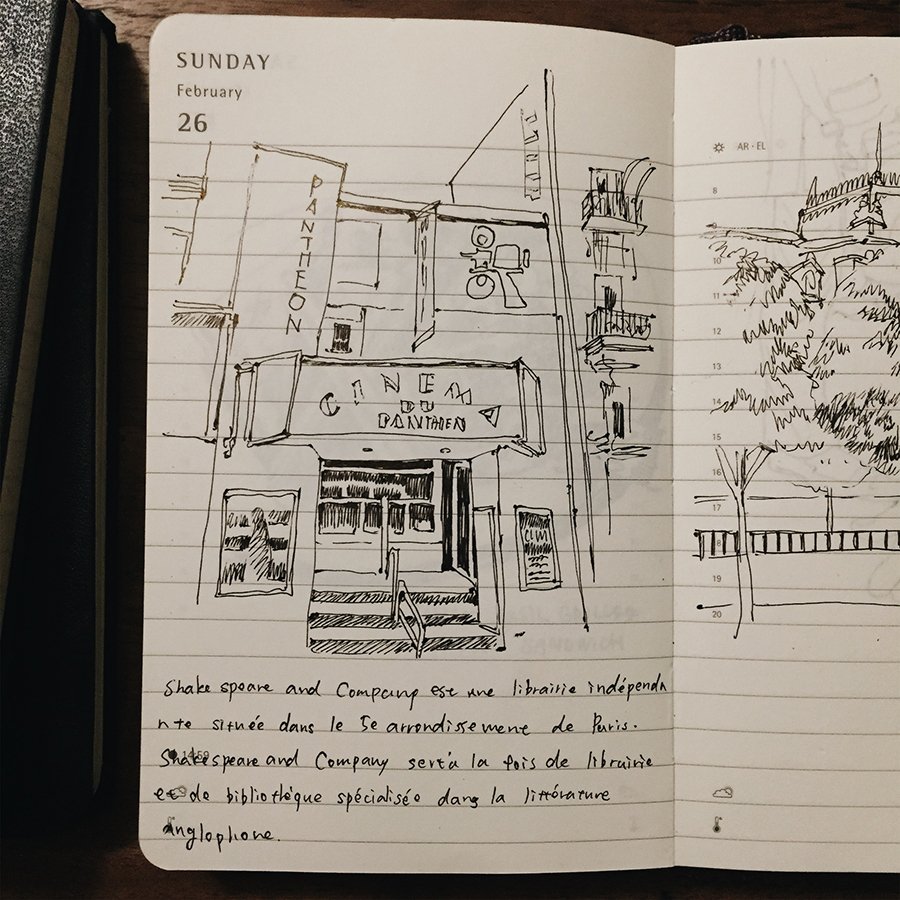 SUNDAY
February
26
PANTHEON
CINEMA
DU
PANTHEN
Shakespeare and Compcunp est une librairie indépenda
nte située dans le 5e arrondissement de Paris.
14:59
Shakespeare and Company sert à la fois de librairie
et de bibliothèque spécialisée dans la littérature
anglophone.
AR · EL
8
9
10
11
12
13
14
15
16
17
18
19
20